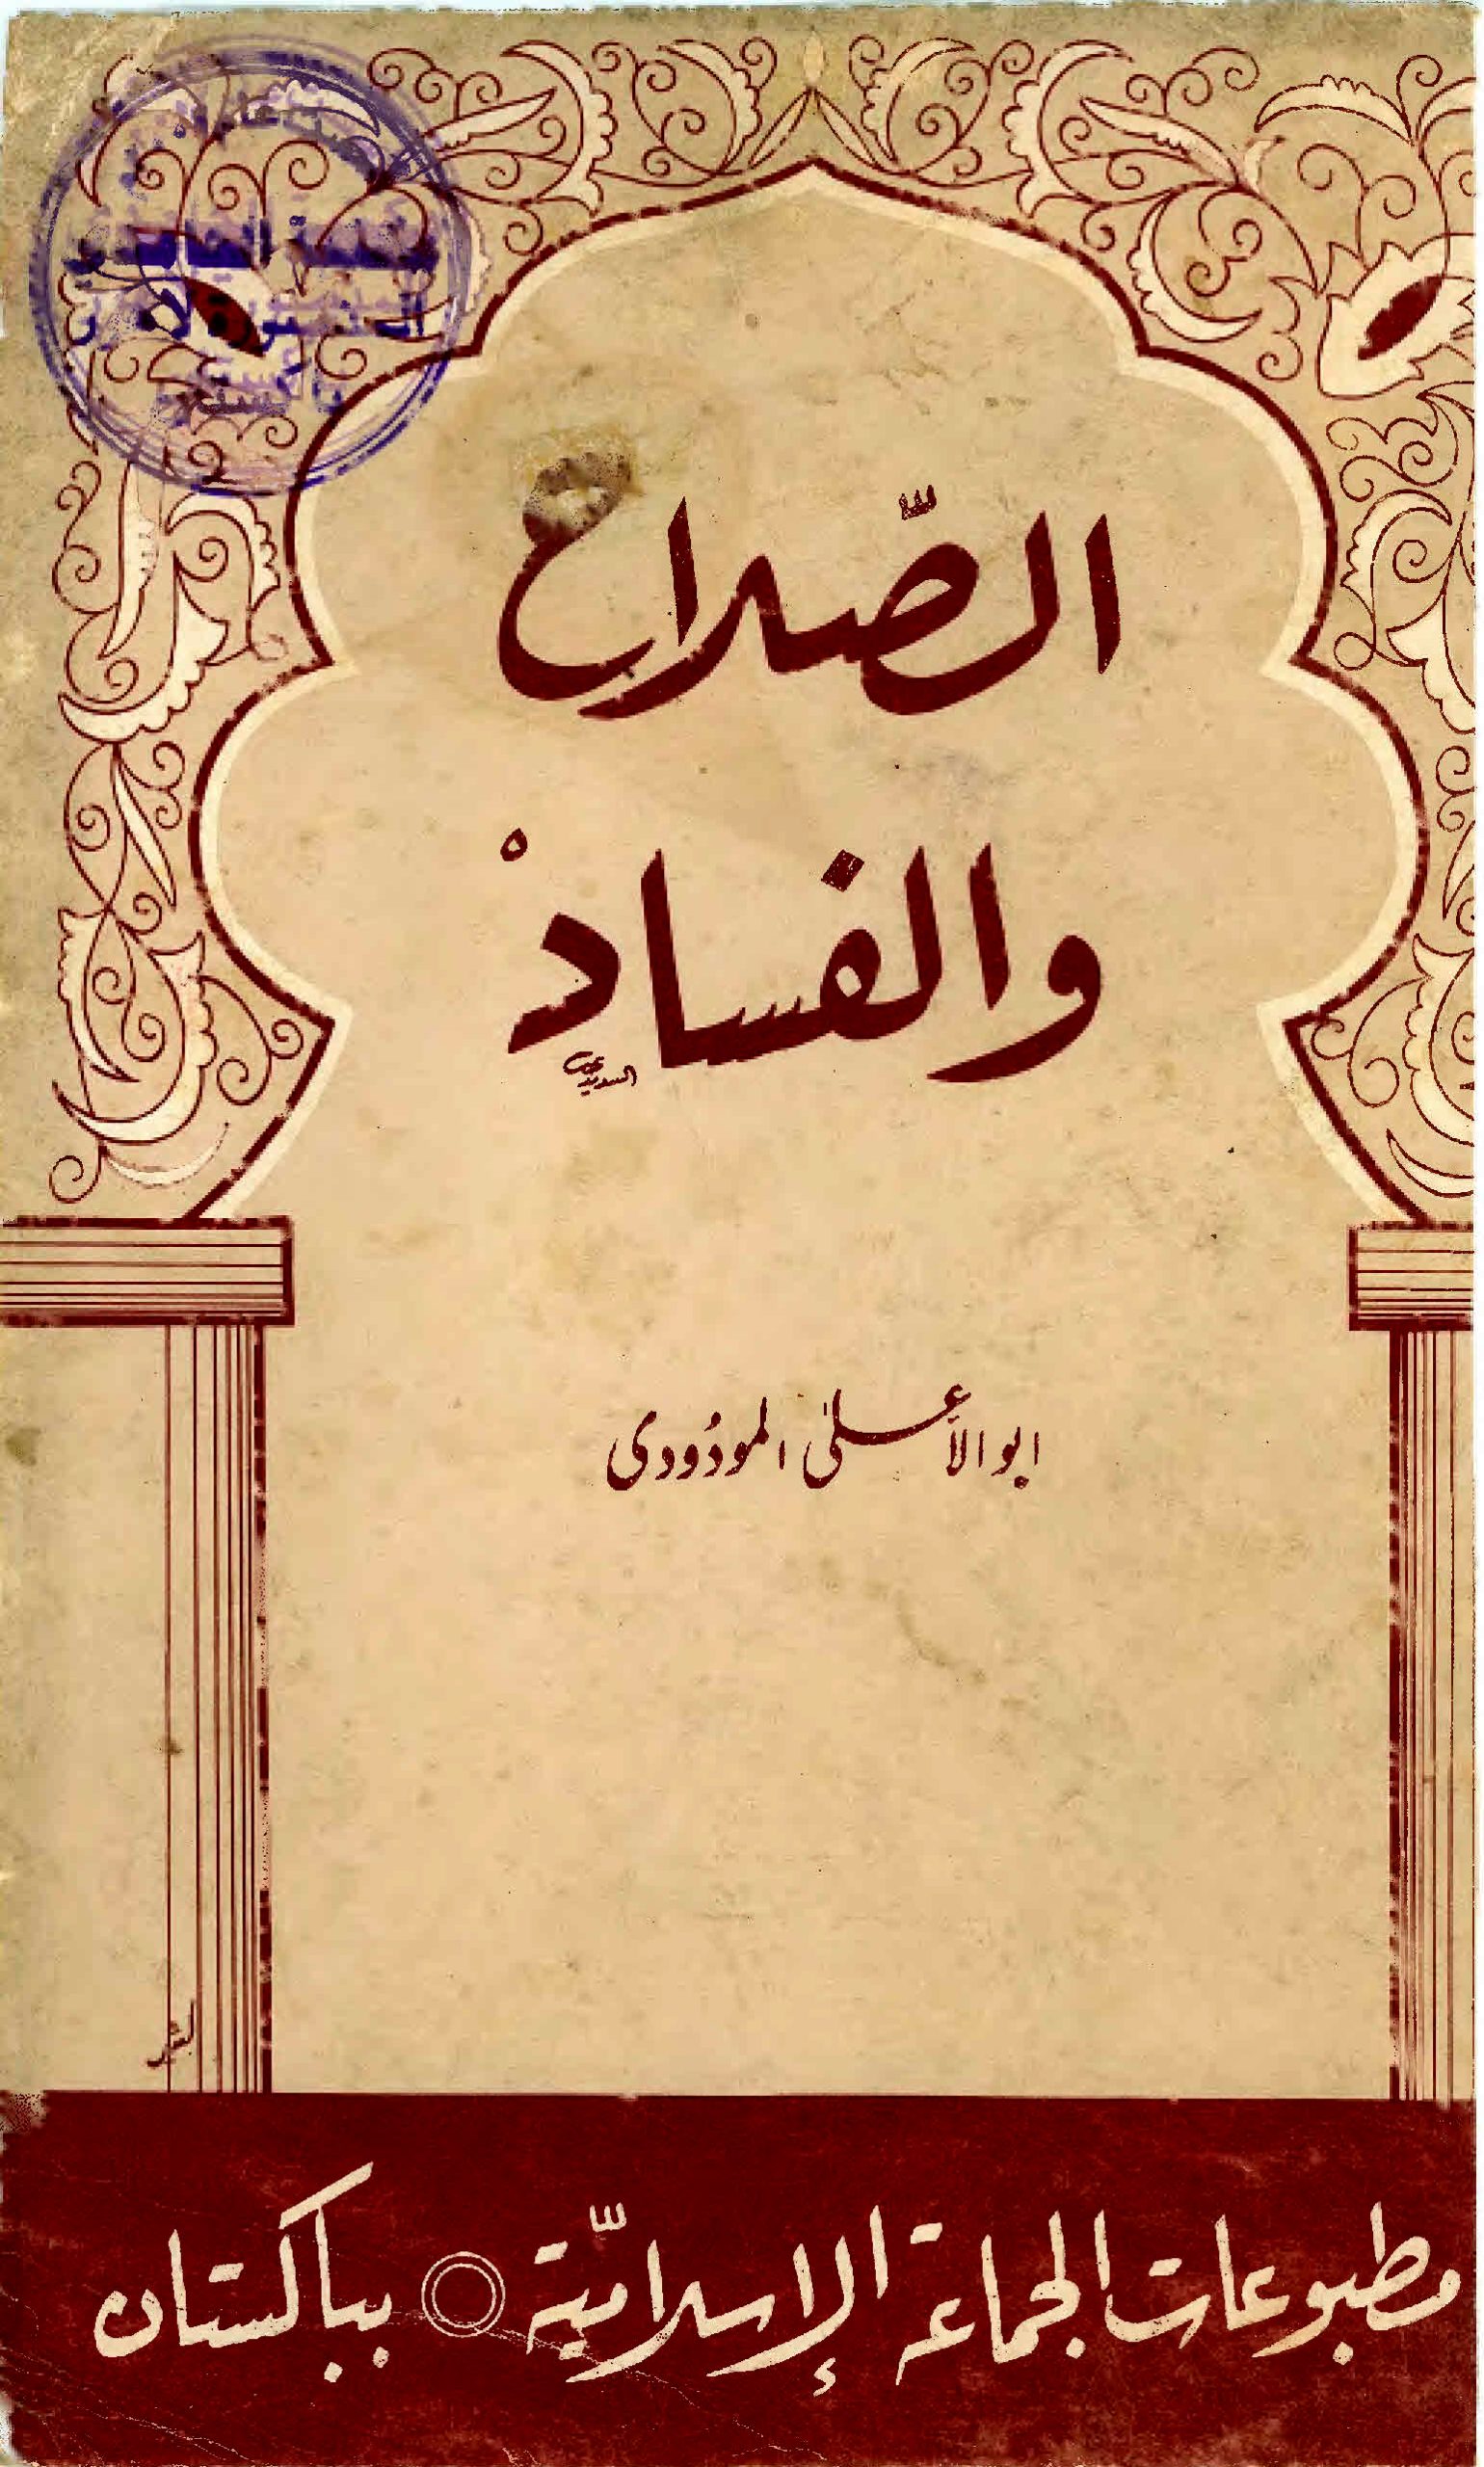 الصّلاح
والفسادْ
ابو الأعلىٰ المودُودى
مطبوعات الجماعة الإسلاميّة بباكستان